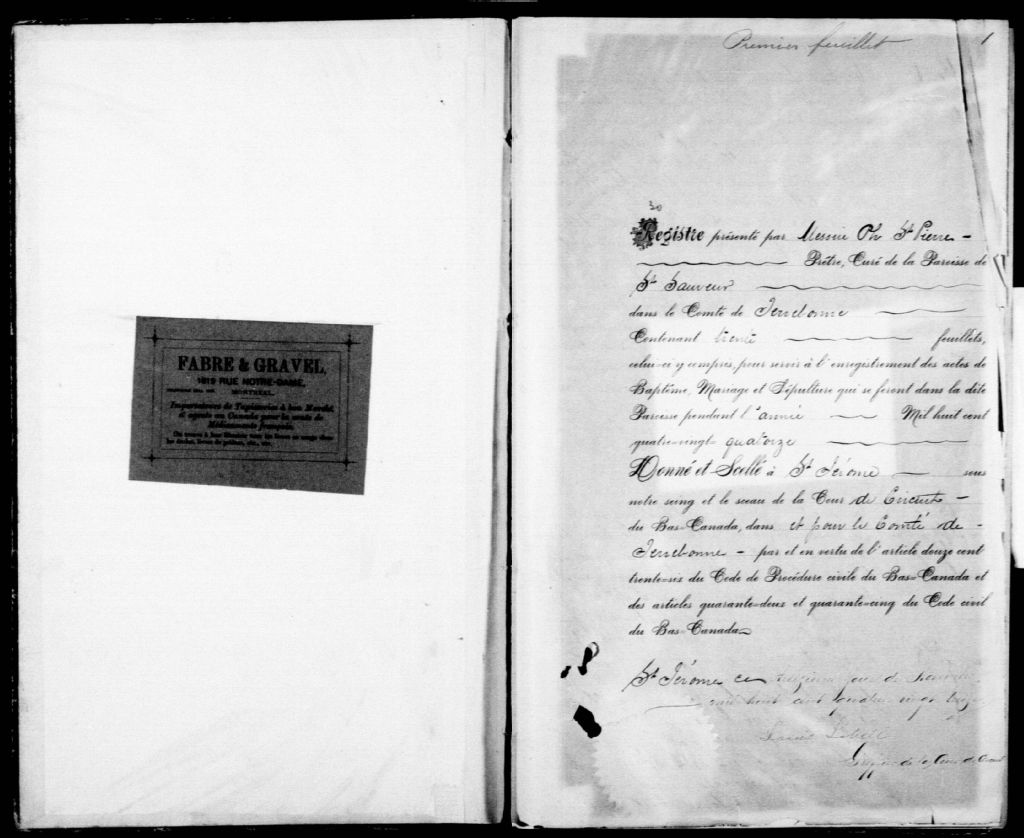 FABRE & GRAVEL,
1619 RUE NOTRE-DAME,
MONTREAL.
Importateurs de Tapisseries à bon Marché,
et agents au Canada pour la vente de
Médicaments français.
Premier feuillet 1
30
Registre présenté par Messire Ph St Pierre -
Prêtre, Curé de la Paroisse de
St Sauveur
dans le Comté de Terrebonne
Contenant trente feuillets,
celui-ci y compris, pour servir à l'enregistrement des actes de
Baptême, Mariage et Sépulture qui se feront dans la dite
Paroisse pendant l'année Mil huit cent
quatre-vingt quatorze
Donné et Scellé à St Jérome sous
notre seing et le sceau de la Cour de Circuit -
du Bas-Canada, dans et pour le Comté de -
Terrebonne - par et en vertu de l'article douze cent
trente-six du Code de Procédure civile du Bas-Canada et
des articles quarante-deux et quarante-cinq du Code civil
du Bas-Canada
St Jérome ce jour de
mil huit cent quatre vingt treize
Greffier de la Cour de Circuit